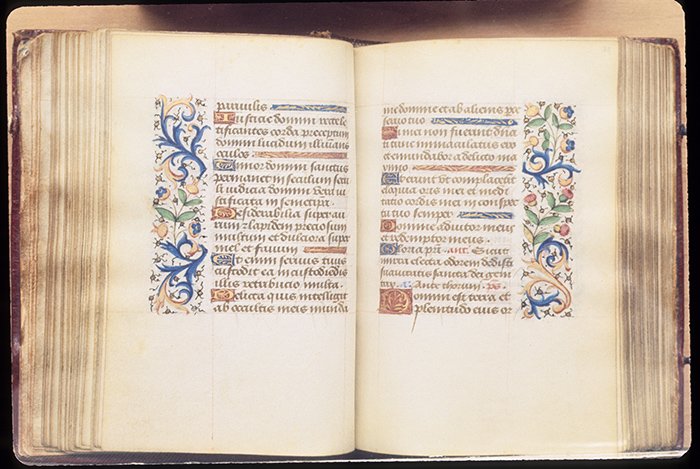 paruulis
Iusticie domini recte le
tificantes corda preceptum
domini lucidum illumians
occulos
Timor domini sanctus
permanet in seculum secu
li iudicia domini vera iu
stificata in semetipsa
Desiderabilia super au
rum et lapidem preciosum
multum et dulciora super
mel et fauum
Et enim seruus tuus
custodit ea in custodiendis
illis retributio multa
Delicta quis intelligit
ab occultis meis munda
me domine et ab alienis par
seruo tuo
Si mei non fuerint dnati
tunc immaculatus ero
et emundabor a delicto ma
ximo
Et erunt ut complaceant
eloquia oris mei et medi
tatio cordis mei in conspec
tu tuo semper
Domine adiutor meus
et redemptor meus
Gloria pri ant. Sicut
mirra electa odorem dedisti
suauitatis sancta dei geni
trix Ante thorum ps
Domini est terra et
plenitudo eius or